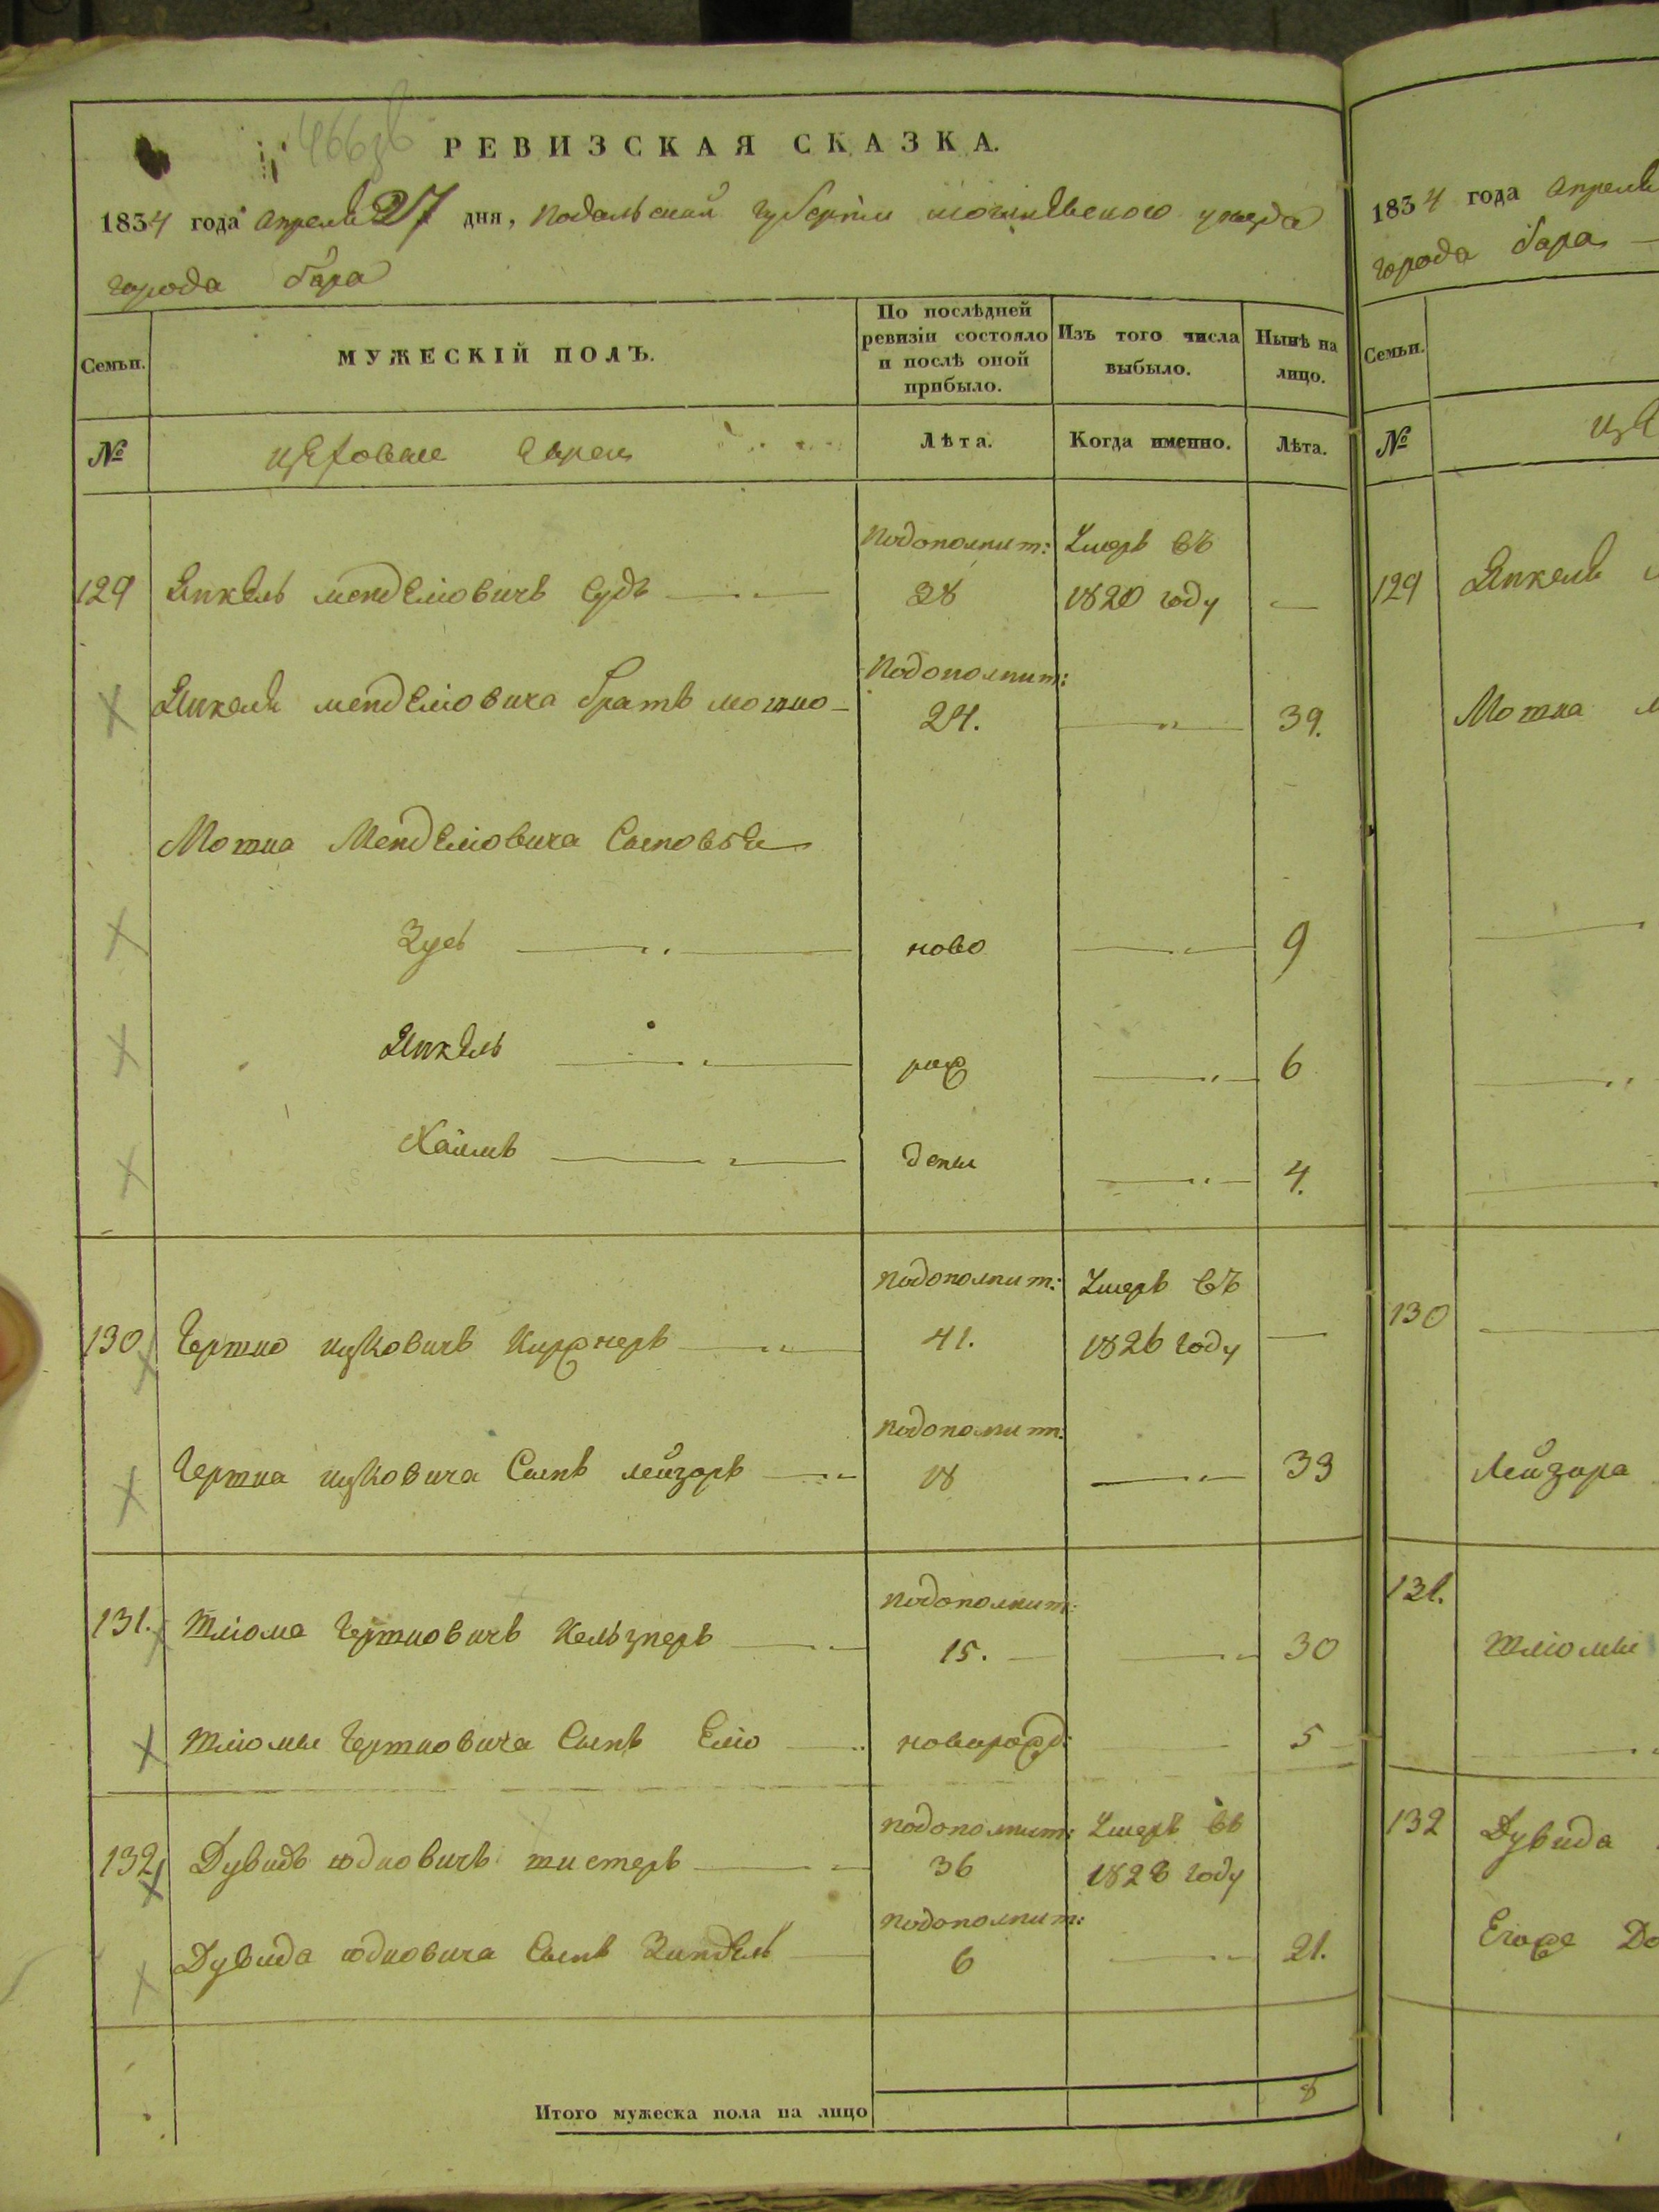 466зв
РЕВИЗСКАЯ СКАЗКА.
1834 года апреля 27 дня, подольской губернии могилевского уезда
города бара
Семьи.
МУЖЕСКІЙ ПОЛЪ.
По послѣдней
ревизіи состояло
и послѣ оной
прибыло.
Изъ того числа
выбыло.
Нынѣ на
лицо.
№
цеховые евреи
Лѣта.
Когда именно.
Лѣта.
Подополнит: Умеръ въ
129 Янкель менделiовичъ Судъ 28 1820 году —
Подополнит:
Янкеля менделiовича братъ мошко 24. 39.
Мошка Менделiовича Сыновья
Зусь ново 9
Янкель рож 6
Хаимъ дены 4.
подополнит: Умеръ въ
130 Гершко ицковичъ 41. 1826 году —
подополнит:
Гершка ицковича Сынъ лейзоръ 18 33
подополнит:
131. Шлiома Гершковичъ Кельзнеръ 15. 30
Шлiомы Гершковича Сынъ Елiо новорожд: 5
подополнит: Умеръ въ
132 Дувидъ юдковичъ шистеръ 36 1828 году
подополнит:
Дувида юдковича Сынъ Зиндель 6 21.
Итого мужеска пола на лицо 8
1834 года апреля
города бара
Семьи.
№
129 Янкеля
Мошка
130
Лейзора
131.
Шлiомы
132 Дувида